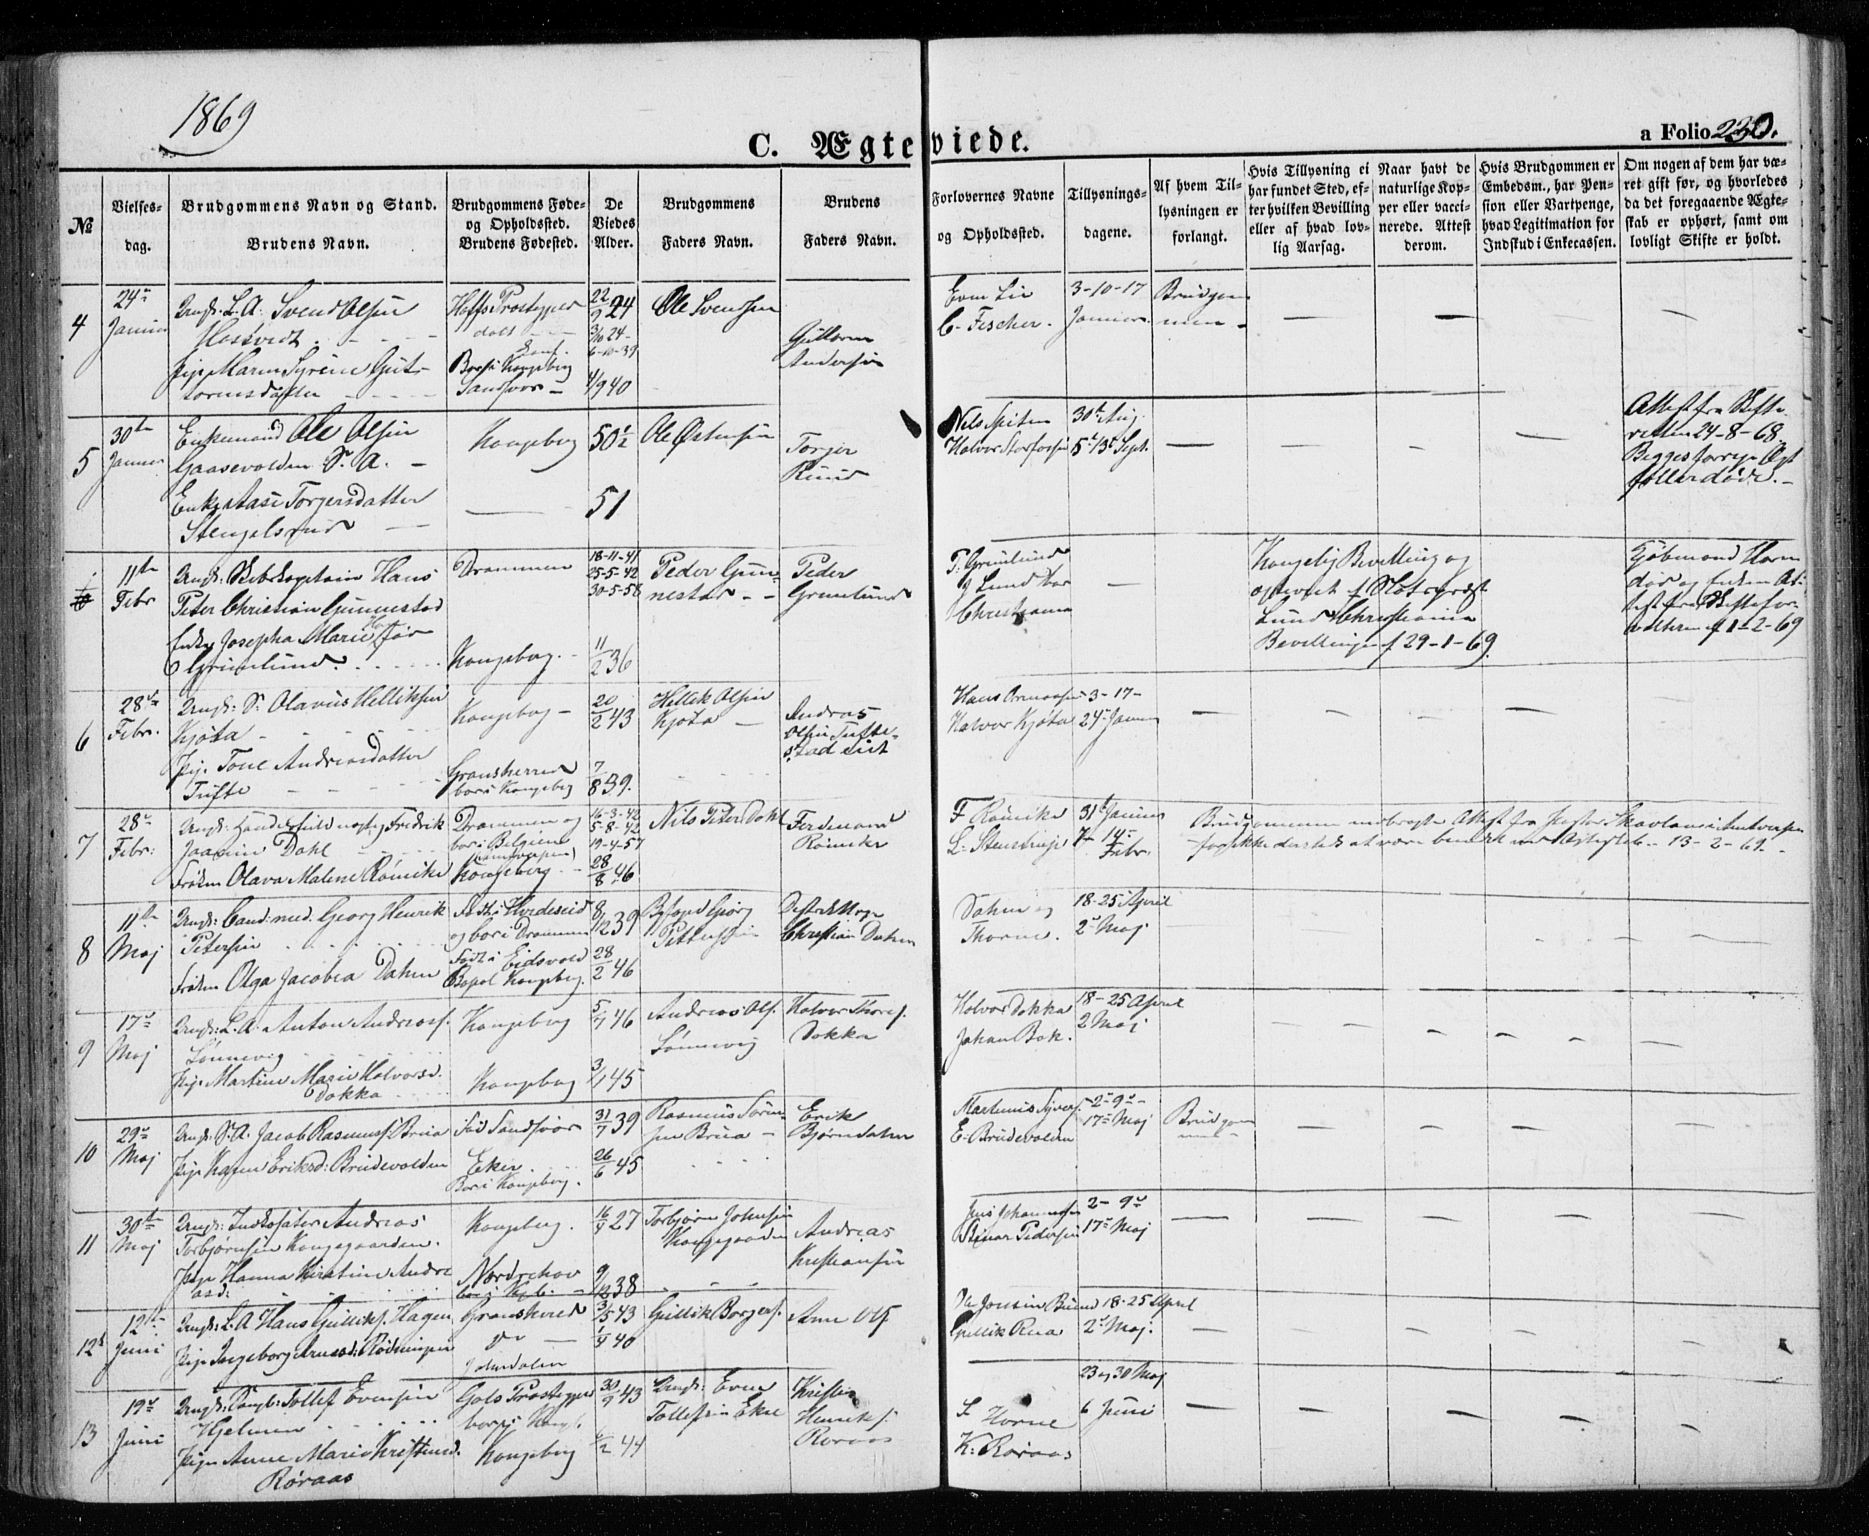 1869
C. Ægteviede.
a Folio 230.
№
Vielses-
dag.
Brudgommens Navn og Stand.
Brudens Navn.
Brudgommens Føde-
og Opholdssted.
Brudens Fødested.
De
Viedes
Alder.
Brudgommens
Faders Navn.
Brudens
Faders Navn.
Forlovernes Navne
og Opholdssted.
Tillysnings-
dagene.
Af hvem Til-
lysningen er
forlangt.
Hvis Tillysning ei
har fundet Sted, ef-
ter hvilken Bevilling
eller af hvad lov-
lig Aarsag.
Naar havt de
naturlige Kop-
per eller vacci-
nerede. Attest
derom.
Hvis Brudgommen er
Embedsm., har Pen-
sion eller Vartpenge,
hvad Legitimation for
Indskud i Enkecassen.
Om nogen af dem har væ-
ret gift før, og hvorledes
da det foregaaende Ægte-
skab er ophørt, samt om
lovligt Skifte er holdt.
4
24de
Januar
Ungk. L. A. Svend Olsen
Hosvedt
Pige Maren Syrine Gut-
tormsdatter
Sandsvær
22/9 24
4/9 40
Ole Svendsen
Guttorm
Andersen
Even Lie
C. Fischer.
3-10-17
Januar
Brudgom-
men
5
30te
Januar
Enkemand Ole Olsen
Gaasevolden S. A.
Enke Aase Torgersdatter
Stengelsrud
Kongsberg
50 1/2
51
Ole Østensen
Torger
Ruud
Nils Spiten
Halvor Storforsen
30te Aug.
5te 13de Sept.
Attest fra Skifte-
retten 24-8-68.
Begges forrige Ægte-
fæller døde.
11te
Febr
Ungk. Skibskaptein Hans
Peter Christian Gunnestad
Enke Josepha Marie
Grønlund.
Drammen
Kongsberg.
18-11-41
25-5-42
30-5-58
11/2 36
Peder Gun-
nestad
Peder
Grønlund
P. Grønlund
Christiania
Kongelig Bevilling og
Lund Christiania
Bevillingen f 29-1-69.
f 1-2-69
6
28de
Febr.
Ungk. S. Olavus Helliksen
Kjøta
Pige Tone Andreasdatter
Tufte
Kongsberg
Gransherred
bor i Kongsberg
20/2 43
7/8 39.
Hellik Olsen
Kjøta
Andreas
Olsen Tufte-
Halvor Kjøta
3-17-
24de Januar
7
28de
Febr.
Ungk. Handelsfuldmægtig Fredrik
Joachim Dahl
Frøken Olava Malene Römcke
Drammen og
bor i Belgien
Kongsberg.
16-3-42
5-8-42
19-4-57
28/8 46
Nils Peter Dahl
Ferdinand
Römcke
F. Römcke
L. Stenstrup
31te Januar
7de 14de
Febr.
Brudgommen medbragte Attest fra Pastor Skavlan i Antwerpen
13-2-69.
8
11te
Maj
Ungk. Cand. med. Georg Henrik
Petersen
Frøken Olga Jacobea Dahm
Født i Hvideseid
og bor i Drammen
Født i Eidsvold
Bopæl Kongsberg.
8/12 39
28/2 46
Byfoged Georg
Pettersen
Distriktslæge
Christian Dahm
Dahm og
Thorne.
18-25 April
2de Maj
9
17de
Maj
Ungk. L. A. Anton Andreass.
Sønnevig
Pige Martine Marie Halvorsd.
Dokka
Kongsberg
Kongsberg
5/7 46
3/1 45
Andreas Ols.
Sønnevig
Halvor Thores.
Dokka
Halvor Dokka
Johan Bok.
18-25 April
2 Maj
10
29de
Maj
Ungk. S. A. Jacob Rasmuss. Brua
Pige Karen Eriksd. Brudevolden
Fød Sandsvær
Eker.
Bor i Kongsberg.
31/7 39
26/6 45
Rasmus Søren-
sen Brua
Erik
Bjørndalen
Martinius Syvers.
E. Brudevolden
2-9de
17de Maj
Brudgom-
men
11
30te
Maj
Ungk. Inderst Andreas
Torbjørnsen Kongsgaarden.
Pige Hanna Kirstine Andre
asd.
Kongsberg.
Norderhov
bor i Kgb.
16/4 27
9/12 38
Torbjørn Johnsen
Kongsgaarden
Andreas
Kristiansen
Jens Johannesen
Einar Pedersen
2-9de
17de Maj
12
12te
Juni
Ungk. L. A. Hans Gulliks. Hagen
Pige Ingeborg Arnesd. Rødningen
Gransherred
Do
Jondalen
3/5 43
1/4 40
Gullik Borgers.
Arne Ols.
Ole Jonsen Ruud
Gullik Rua
18-25 April
2de Maj.
13
19de
Juni
Ungk. Tollef Evensen
Hjelmen
Pige Anne Marie Kristensd.
Røraas
Gols Præstegjeld
bor i Kongsb.
Kongsberg
30/9 43
1/2 44
Ungk. Even
Tollefsen Eke
Kristen
Henriks.
Røraas
S. Horne
K. Røraas
23 og 30 Maj
6 Juni